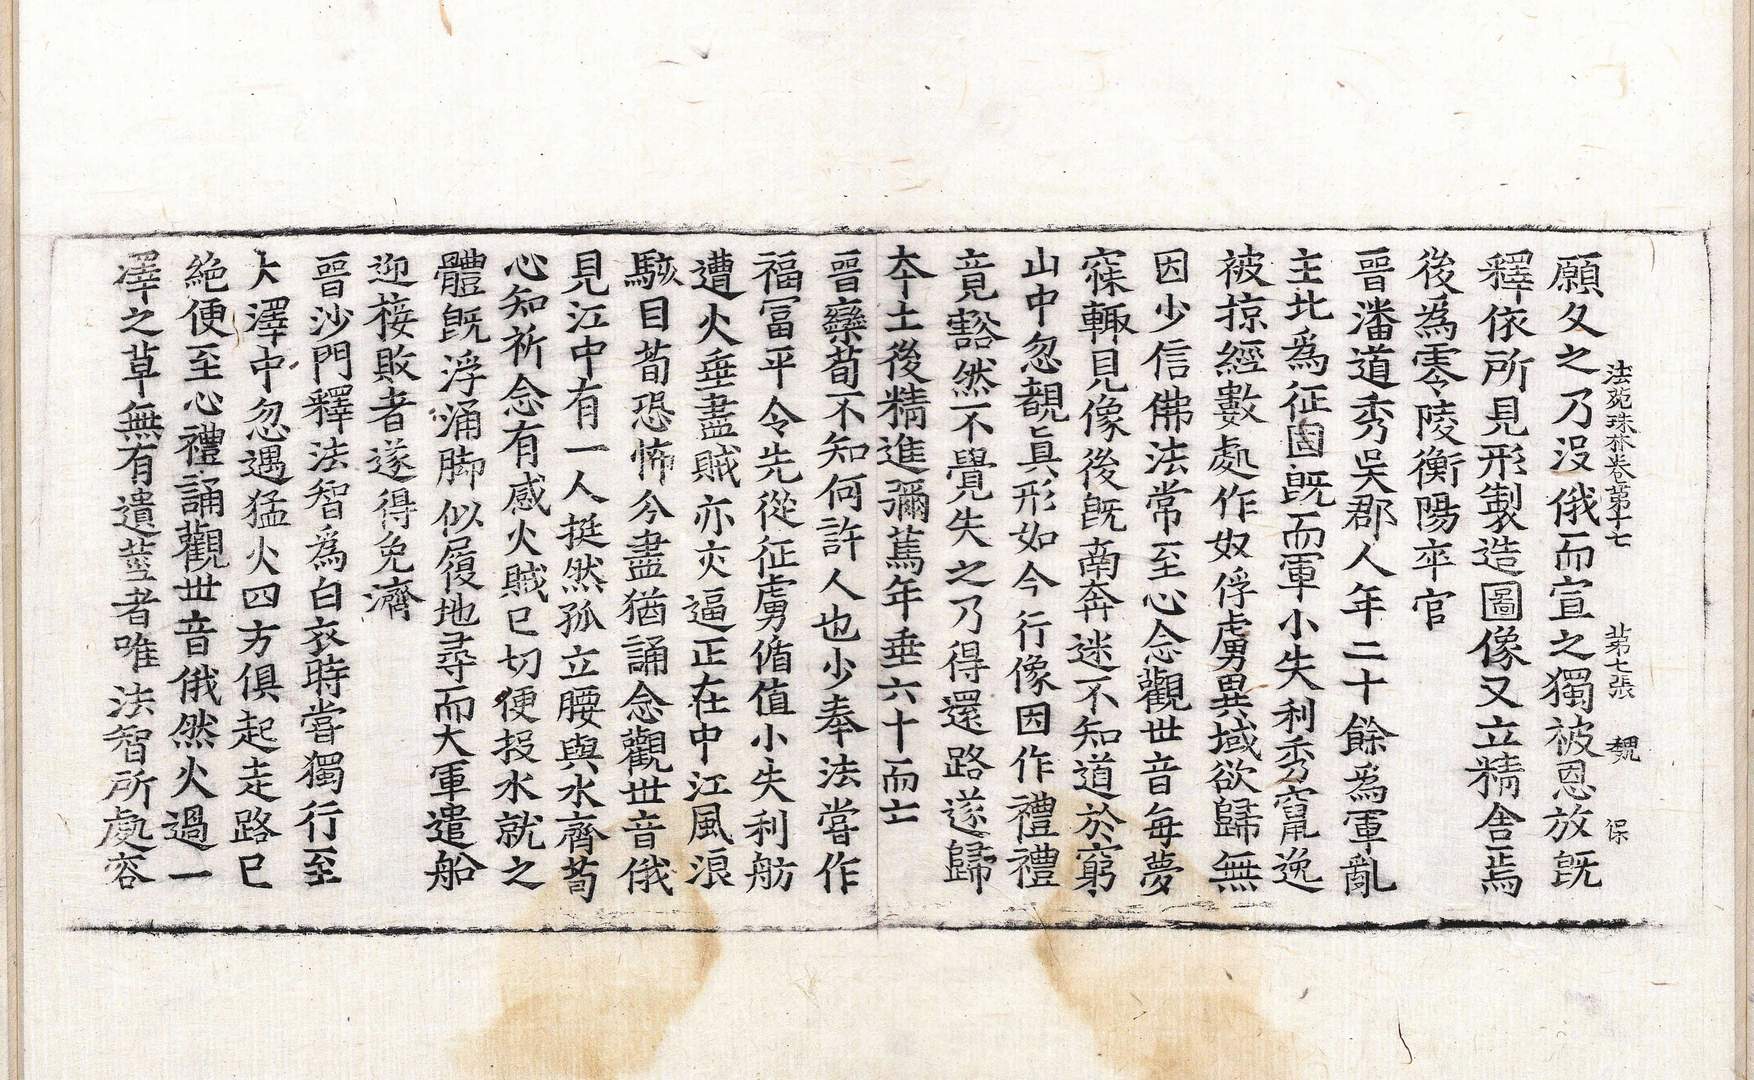 法苑珠林卷第十七 第七張 魏 保
願久之乃没俄而宣之獨被恩放旣
釋依所見形製造圖像又立精舍焉
後爲零陵衡陽卒官
晉潘道秀吳郡人年二十餘爲軍亂
主北爲征固旣而軍小失利秀竄逸
被掠經數處作奴俘虜異域欲歸無
因少信佛法常至心念觀世音每夢
寐輙見像後旣南奔迷不知道於窮
山中忽覩眞形如今行像因作禮禮
竟豁然不覺失之乃得還路遂歸
本土後精進彌篤年垂六十而亡
晉欒荀不知何許人也少奉法嘗作
福冨平令先從征虜循值小失利舫
遭火垂盡賊亦交逼正在中江風浪
駭目荀恐怖今盡猶誦念觀世音俄
見江中有一人挺然孤立腰與水齊荀
心知祈念有感火賊已切便投水就之
體旣浮涌脚似履地尋而大軍遣船
迎接敗者遂得免濟
晉沙門釋法智爲白衣時嘗獨行至
大澤中忽遇猛火四方俱起走路已
絶便至心禮誦觀世音俄然火過一
澤之草無有遺莖者唯法智所處容